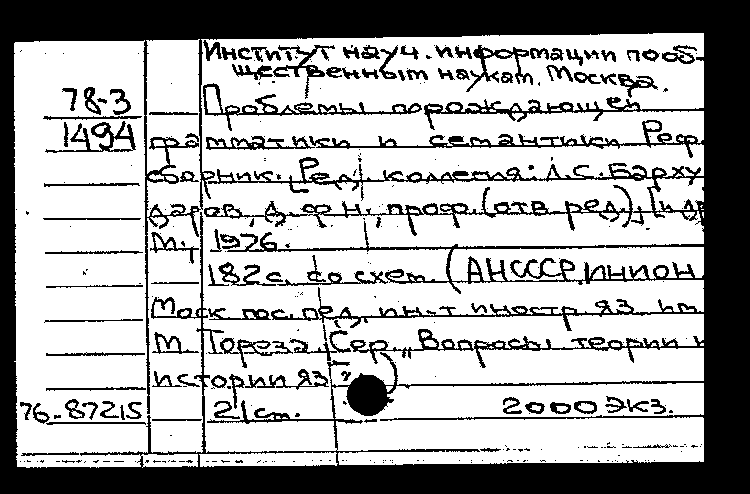 Институт науч. информации по об-
щественным наукам. Москва.
78-3 Проблемы порождающей
1494 грамматики и семантики Реф.
сборник. [Ред. коллегия: Л.С. Барху
даров, д. ф. н., проф. (отв. ред.), [и др
М., 1976.
182 с. со схем. (АН СССР. ИНИОН.
Моск гос. пед. ин-т иностр. яз. им.
М. Тореза. Сер. „Вопросы теории и
истории яз.")
76-87215 21 см. 2000 экз.